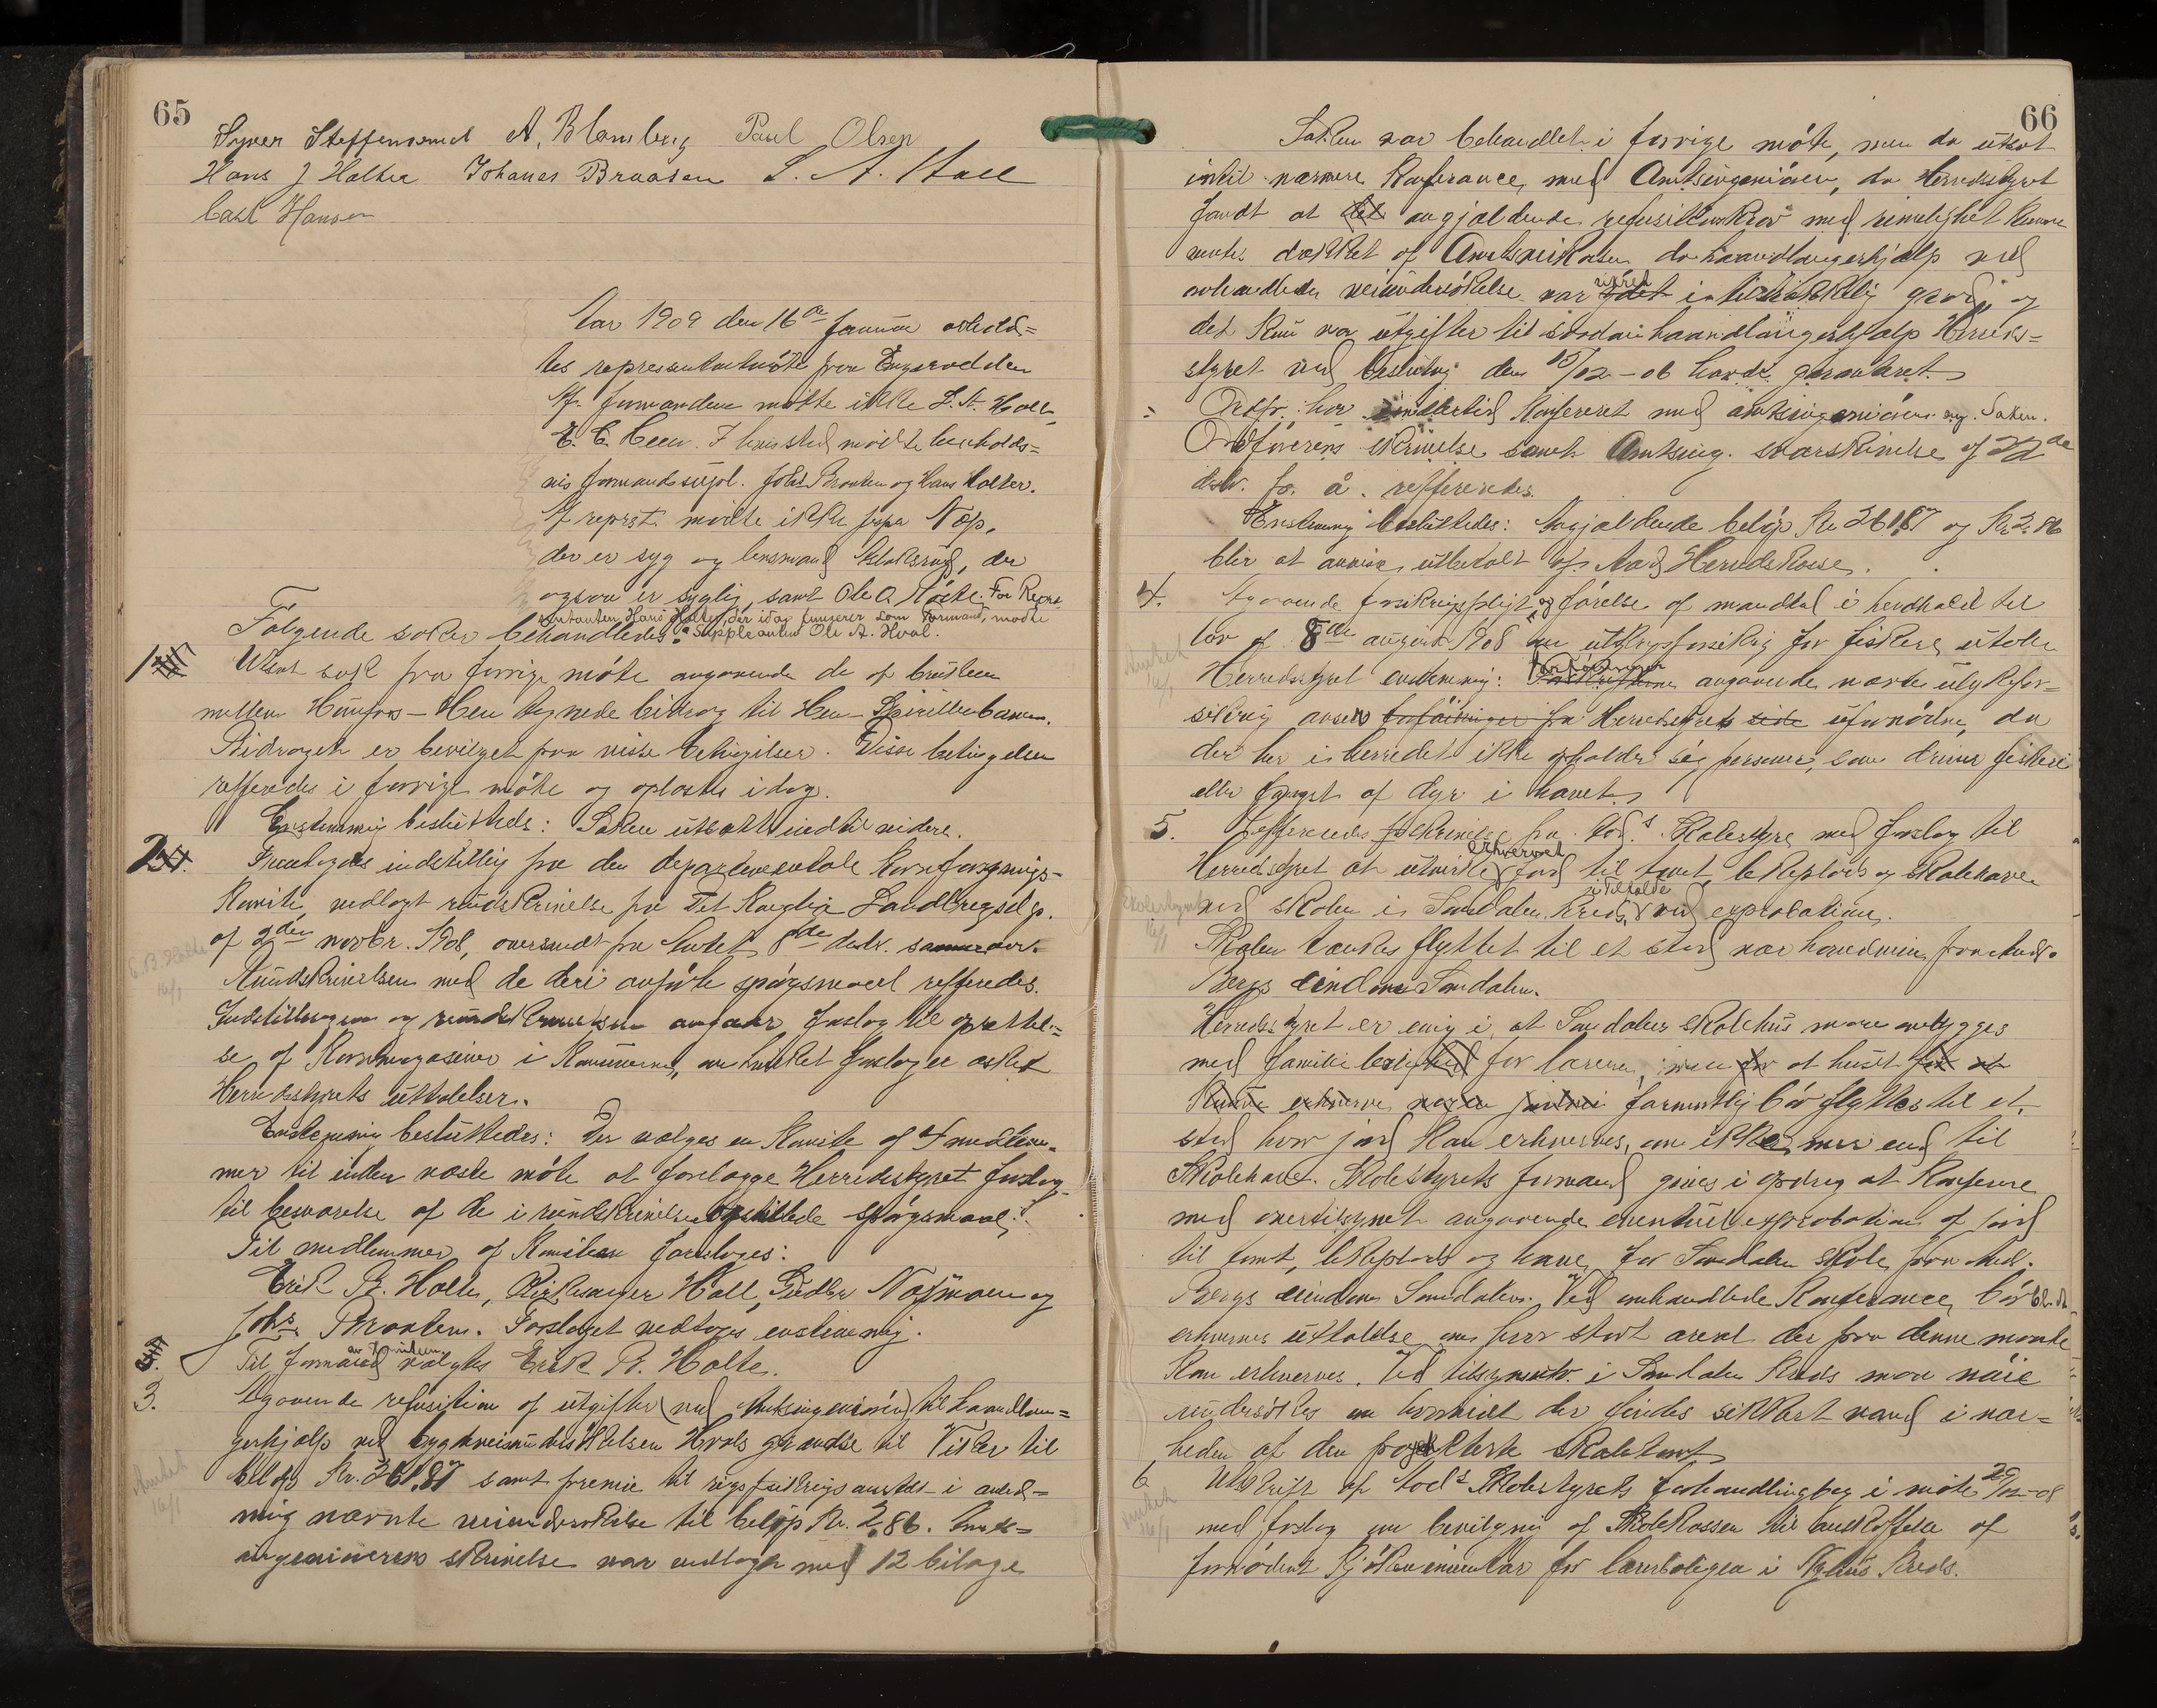 65
Syver Steffensrud A. Blomberg Paul Olsen
Hans J Holter Johanes Braaten L. A. Hall
Carl Hansen
Aar 1909 den 16de januar avhold=
tes representantmøte paa Engerodden
Af formændene møtte ikke L. A. Hall,
E. C. Heen. I hans sted møtte henholds=
vis formandssupl. Johs Braaten og Hans Holter.
Af reprst. møtte ikke Næp,
der er syg og lensmand Klæksrud, der
ogsaa er syglig, samt Ole A. For Repræ
sentanten Hans Holter, der idag fungerer som Formand, møtte
Følgende saker behandledes: Supplranten Ole A. Hval.
1
Utsat sak fra forrige møte angaaende de af bruken
mellem Hønefos – Hen tegnede bidrag til Hen – Spirillenbanen.
Bidraget er bevilget paa visse betingelser. Disse betingelser
refferedes i forrige møte og oplæstes idag.
Enstemmig besluttedes: Saken utsættes indtil videre.
2.
Fremlagdes indstilling fra den departementale Kornforsynings-
Komite, vedlagt rundskrivelse fra Det Kongelige Landbrugsdep.
af 2den novbr. 1908, oversendt fra Amtet 8de decbr. samme aar.
Rundskrivelsen med de deri anførte spørgsmaal refferedes.
Indstillingen og rundskrivelsen angaar forslag til oprettel=
se af Kornmagasiner i Kommunerne, om hvilket forslag er æsket
Herredsstyrets uttalelser.
Enstemmig besluttedes: Der vælges en Komite af 4 medlem=
mer til inden næste møte at forelægge Herredsstyret forslag
til besvarelse af de i rundskrivelsen opstillede spørgsmaal.
Til medlemmer af Komiteen foresloges:
Erik B. Holte, Kirkesanger Hall, Gudbr. Næsmoen og
Johs. Braaten. Forslaget vedtoges enstemmig.
Til formand av Komiteen valgtes Erik B. Holte.
3.
Agaaende refusition af utgifter (ved Amtsingeniøren) til haandlan=
gerhjælp ved bygdeveiundersøkelsen Hvals grændse til Viker til
beløp Kr. 361.87 samt premie til rigsforsikringsanstalt i anled=
ning nævnte veiundersøkelse til beløp Kr. 2,86. Amts=
ingeniørens skrivelse var vedlagt med 12 bilage
66
Saken var behandlet i forrige møte, men da utsat
indtil nærmere Konferance med Amtsingeniøren, da Herredsstyret
fandt at det angjældende refusitionskrav med rimelighet kunne
ventes dækket af Amtsveikassen da haandlangerhjælp ved
omhandlede veiundersøkelse var ydet i tilstrækkelig grad, og
det kun var utgifter til saadan haandlangerhjælp Herreds=
styret ved beslutning den 15/02 – 06 havde garanteret.
Ordfr. har imidlertid Konfereret med amtsingeniøren ang. Saken.
Ordførerens skrivelse samt Amtsing. svarskrivelse af 22de
decbr. f. å. refferertes.
Enstemmig besluttedes: Angjældende beløp Kr 361.87 og Kr 2.86
blir at anvise utbetalt af Aads Herredskasse.
4.
Agaaende forsikringspligt og førelse af mandtal i henhold til
lov af 8de august 1908 om ulykkesforsikring for fiskere uttaler
Herredsstyret enstemmig: Forføininger angaaende nævnte ulykkesfor=
sikring ansees forføininger fra Herredsstyrets side ufornødne, da
der her i herredet ikke opholder sig personer, som driver fiskeri
eller fangst af dyr i havet.
5.
Refferedes skrivelse fra Aads Skolestyre med forslag til
Herredsstyret at utvirke erhvervet jord til tomt, lekeplads og skolehave
ved skolen i Somdalens Kreds, i tilfælde ved exprobation.
Skolen tænkes flyttet til et sted nær hovedveien paa Andr.
Bergs eiendom Somdalen.
Herredsstyret er enig i, at Somdalen skolehus maa ombygges
med familiebolig for læreren, men at huset for at
kunne erhverve jordvei formentlig bør flyttes til et
sted hvor jord kan erhverves, om ikke mer end til
Skolehave. Skolestyrets formand gives i opdrag at Konferere
med overtilsynet angaaende eventuel exprobation af jord
til tomt, lekeplads og have for Somdalen skole paa And.
Bergs eiendom Somdalen. Ved omhandlede Konferance bør bl. a.
erhverves uttalelse om hvor stort areal der paa denne maate
kan erhverves. Ved tilsynsutv. i Somdalen Kreds maa nøie
undersøkes om hvorvidt der findes sikkert vand i nær=
heden af den projekterte skoletomt.
6
Utskrift af Aads Skolestyrets forhandlingbog i møte 29/12-08
med forslag om bevilgning af Skolekassen til anskaffelse af
fornødent Kjøkkeninventar for lærerboligen i Nghus Kreds.